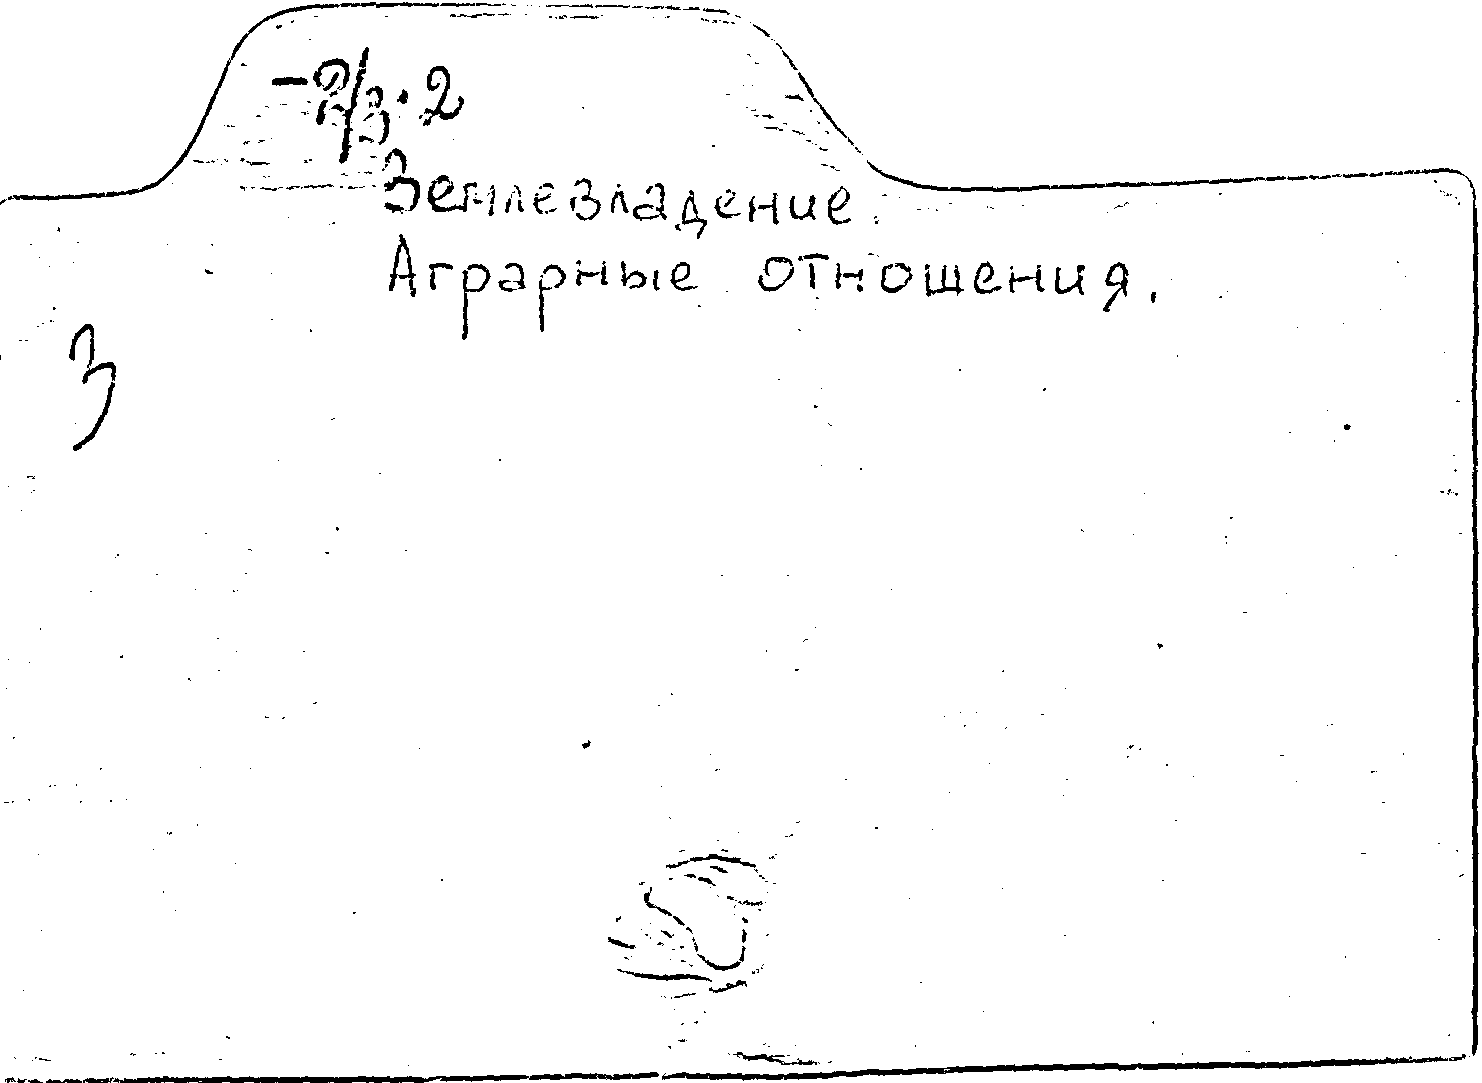 -2/3.2
Землевладение.
Аграрные отношения.
3